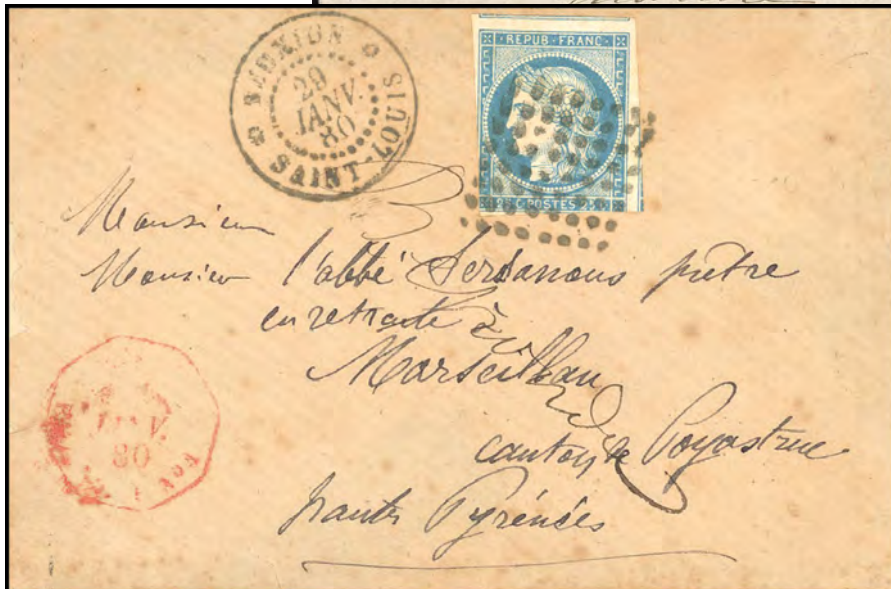 RÉUNION
29
JANV.
80
SAINT-LOUIS
REPUB·FRANC·
25 C POSTES 25
Monsieur
Monsieur l'abbé prêtre
en retraite à
Marseillan
canton de Poyastruc
hautes Pyrénées
80